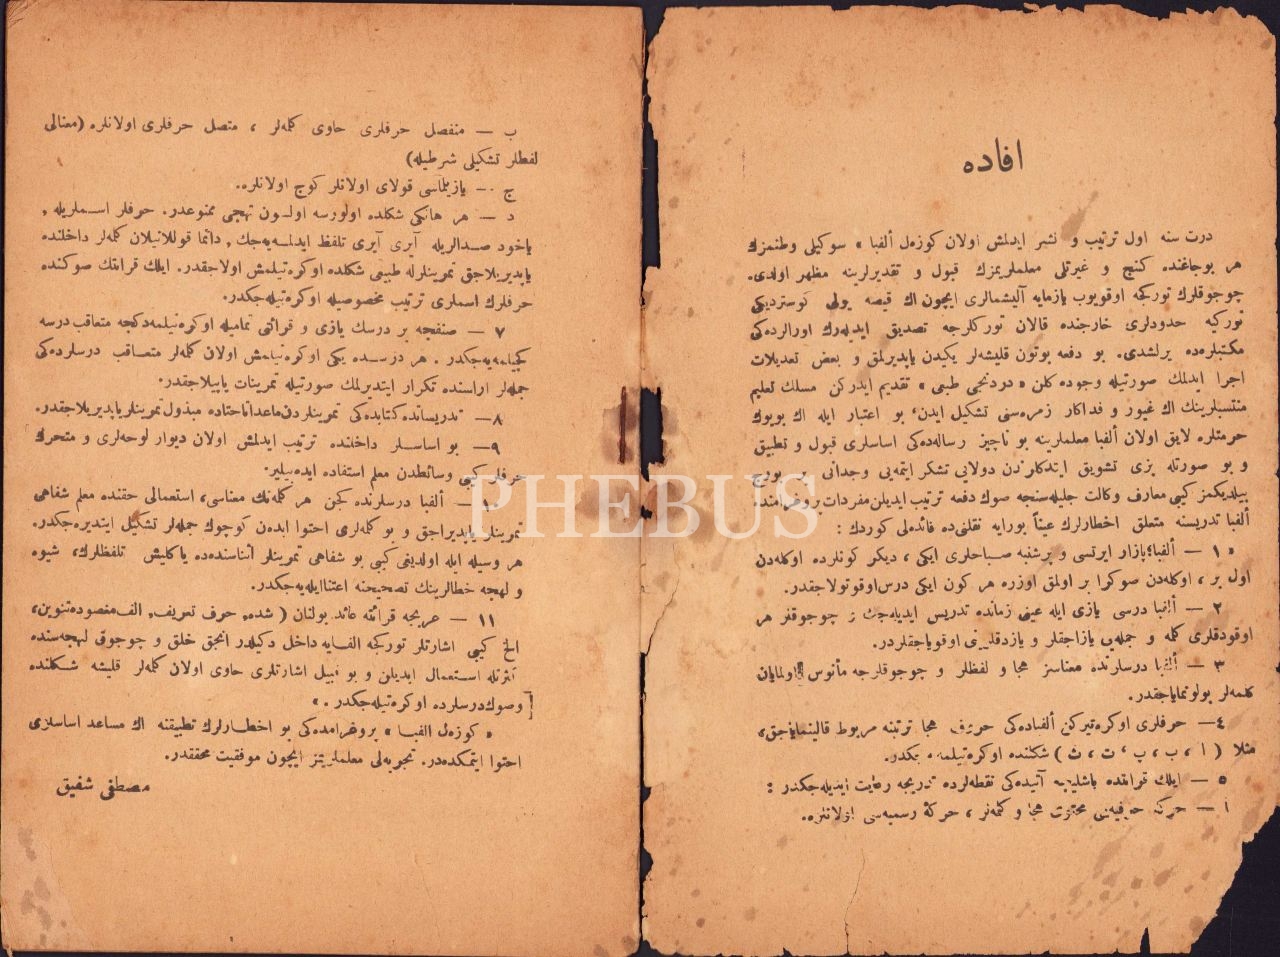 افاده
درت سنه اول ترتيب و نشر ايدلمش اولان كوزه‌ل ألفبا، سوكيلى وطنمزك
هر بوجاغنده كنج و غيرتلى معلملريمزك قبول و تقديرلرينه مظهر اولدى.
چوجوقلرك توركجه اوقويوب يازمايه آليشمالرى ايچون اك قيصه يولى كوسترديكى
توركيه حدودلرى خارجنده قالان توركلرجه تصديق ايديله‌رك اورالرده‌كى
مكتبلره‌ده يرلشدى. بو دفعه بوتون قليشه‌لر يكيدن ياپديرلمق و بعض تعديلات
اجرا ايدلمك صورتيله وجوده كلن « دردنجى طبعى » تقديم ايدركن مسلك تعليم
منتسبلرينك اك غيور و فداكار زمره‌سنى تشكيل ايدن، بو اعتبار ايله اك بويوك
حرمتلره لايق اولان ألفبا معلملرينه بو ناچيز رساله‌ده‌كى اساسلرى قبول و تطبيق
و بو صورتله بزى تشويق ايتدكلرندن دولايى تشكر ايتمه‌يى وجدانى بر بورج
بيلديكمز كبى معارف وكالت جليله‌سنجه صوك دفعه ترتيب ايديلن مفردات پروغرامنده
ألفبا تدريسنه متعلق اخطارلرك عيناً بورايه نقلنى‌ده فائده‌لى كوردك :
« ١ — ألفبا؛ پازار ايرتسى و پرشنبه صباحلرى ايكى ، ديكر كونلرده اوكله‌دن
اول بر ، اوكله‌دن صوكرا بر اولمق اوزره هر كون ايكى درس اوقوتولاجقدر.
٢ — ألفبا درسى يازى ايله عينى زمانده تدريس ايديله‌جك و چوجوقلر هر
اوقودقلرى كلمه و جمله‌يى يازاجقلر و يازدقلرينى اوقوياجقلردر.
٣ — ألفبا درسلرنده معناسز هجا و لفظلر و چوجوقلرجه مأنوس اولمايان
كلمه‌لر بولونماياجقدر.
٤ — حرفلرى اوكره‌تيركن ألفباده‌كى حروف هجا ترتيبنه مربوط قالينماياجق،
مثلا ( ا ، ب ، پ ، ت ، ث ) شكلنده اوكره‌تيلميه‌جكدر.
٥ — ايلك قرائتده باشليجه آتيده‌كى نقطه‌لرده تدريجه رعايت ايديله‌جكدر :
ا — حركه حرفيه‌يى محتوى هجا و كلمه‌لر ، حركۀ رسميه‌سى اولانلره.
ب — منفصل حرفلرى حاوى كلمه‌لر ، متصل حرفلرى اولانلره (معنالى
لفظلر تشكيلى شرطيله)
ج — يازيلماسى قولاى اولانلر كوج اولانلره.
د — هر هانكى شكلده اولورسه اولسون تهجى ممنوعدر. حرفلر اسملريله ,
ياخود صدالريله آيرى آيرى تلفظ ايدلمه‌يه‌جك , دائما قوللانيلان كلمه‌لر داخلنده
ياپديريلاجق تمرينلرله طبيعى شكلده اوكره‌تيلمش اولاجقدر. ايلك قرائتك صوكنده
حرفلرك اسملرى ترتيب مخصوصيله اوكره‌تيله‌جكدر.
٧ — صنفجه بر درسك يازى و قرائتى تماميله اوكره‌نيلمه‌دكجه متعاقب درسه
كچيلمه‌يه‌جكدر . هر درسده يكى اوكره‌نيلمش اولان كلمه‌لر متعاقب درسلرده‌كى
جمله‌لر اراسنده تكرار ايتديرلمك صورتيله تمرينات ياپيلاجقدر.
٨ — تدريساتده كتابده‌كى تمرينلردن ماعدا تاحتاده مبذول تمرينلر ياپديريلاجقدر.
٩ — بو اساسلر داخلنده ترتيب ايدلمش اولان ديوار لوحه‌لرى و متحرك
حرفلر كبى وسائطدن معلم استفاده ايده‌بيلير.
١٠ — ألفبا درسلرنده كچن هر كلمه‌نك معناسى، استعمالى حقنده معلم شفاهى
تمرينلر ياپديراجق و بو كلمه‌لرى احتوا ايدن كوچوك جمله‌لر تشكيل ايتديره‌جكدر.
هر وسيله ايله اولديغى كبى بو شفاهى تمرينلر اثناسنده‌ده ياكليش تلفظلرك، شيوه
و لهجه خطالرينك تصحيحنه اعتنا ايله‌يه‌جكدر.
١١ — عربجه قرائته عائد بولنان ( شده، حرف تعريف، الف مقصوره تنوين،
الخ كبى اشارتلر توركجه الفبايه داخل دكيلدر انجق خلق و چوجوق لهجه‌سنده
كثرتله استعمال ايديلن و بو قبيل اشارتلرى حاوى اولان كلمه‌لر قليشه شكلنده
و صوك درسلرده اوكره‌تيله‌جكدر . »
« كوزه‌ل الفبا » پروغرامده‌كى بو اخطارلرك تطبيقنه اك مساعد اساسلرى
احتوا ايتمكده‌در. تجربه‌لى معلملريمز ايچون موفقيت محققدر.
مصطفى شفيق
PHEBUS